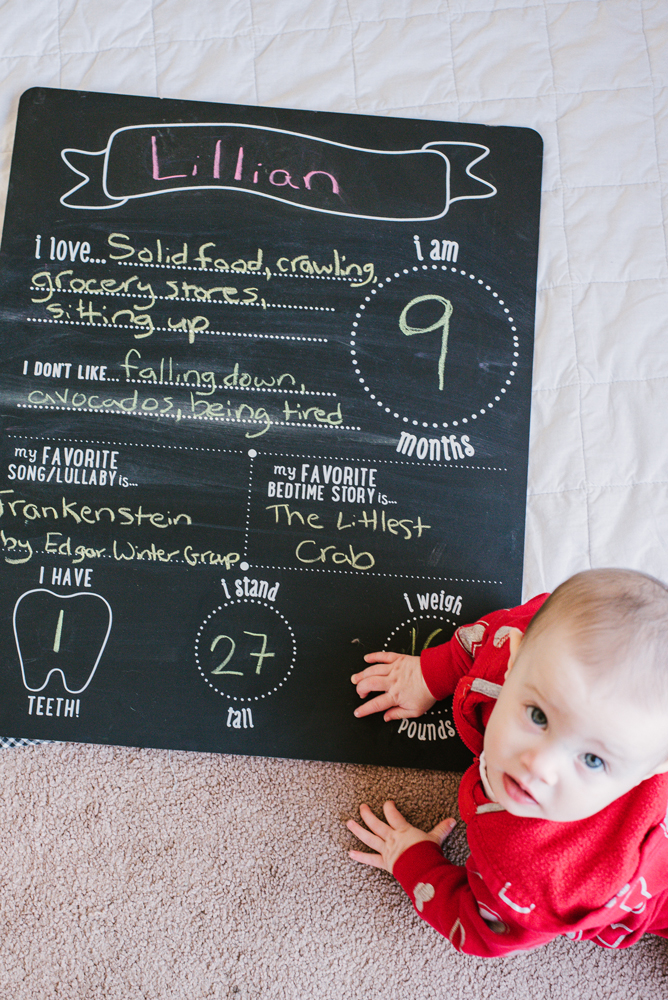 Lillian
i love... Solid food, crawling,
grocery stores,
sitting up
i am
9
months
I DON'T LIKE... falling down,
avocados, being tired
my FAVORITE
SONG/LULLABY is...
Frankenstein
by Edgar Winter Group
my FAVORITE
BEDTIME STORY is...
The Littlest
Crab
I HAVE
1
TEETH!
i stand
27
tall
i weigh
pounds